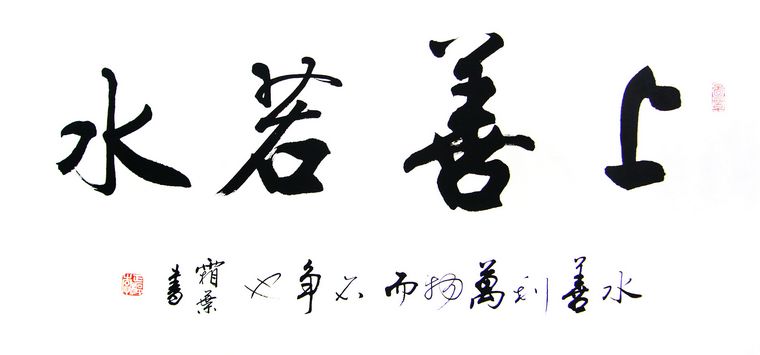 上善若水
水善利萬物而不争也
霜葉書